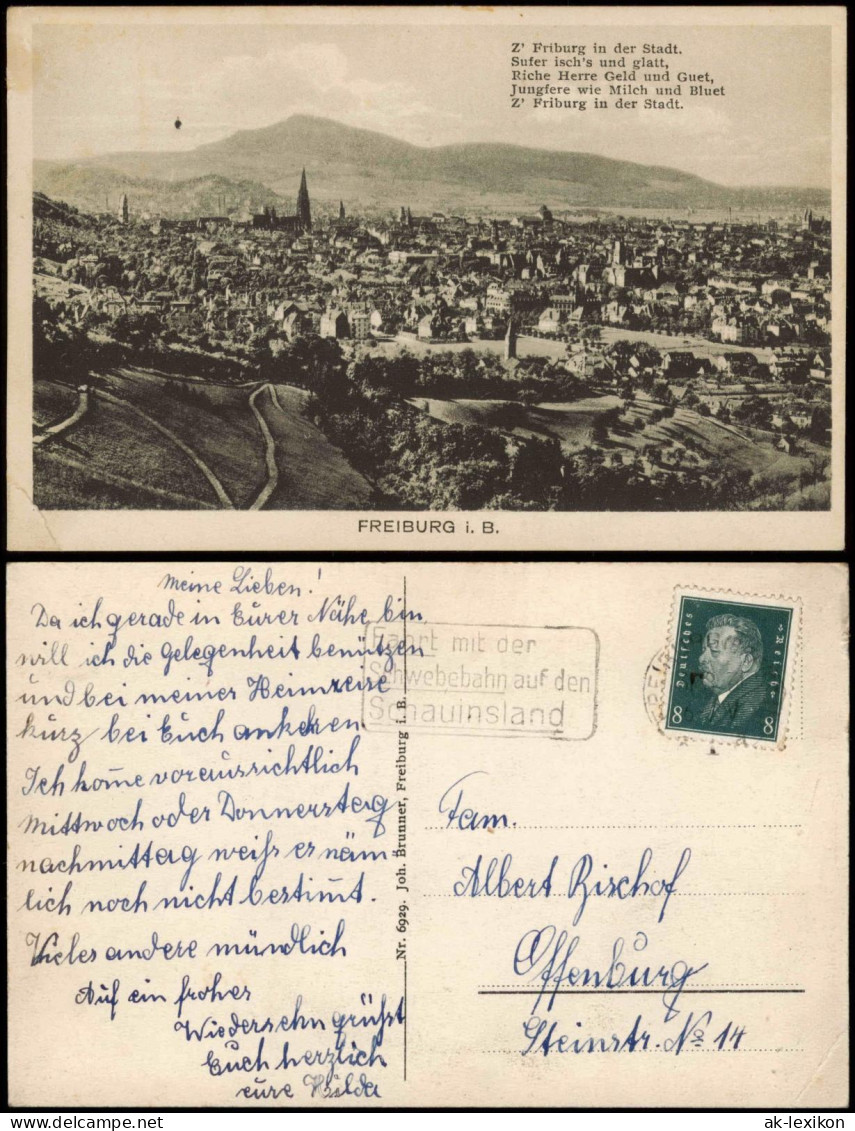 Z' Friburg in der Stadt.
Sufer isch's und glatt,
Riche Herre Geld und Guet,
Jungfere wie Milch und Bluet
Z' Friburg in der Stadt.
FREIBURG i. B.
Meine Lieben!
Da ich gerade in Eurer Nähe bin,
will ich die Gelegenheit benützen
und bei meiner Heimreise
kurz bei Euch ankehren.
Ich kom̅e voraussichtlich
Mittwoch oder Donnerstag
nachmittag weiss es näm-
lich noch nicht bestim̅t.
Vieles andere mündlich
Auf ein frohes
Wiedersehn grüsst
Euch herzlich
eure Hilda
Fahrt mit der
Schwebebahn auf den
Schauinsland
Nr. 6929. Joh. Brunner, Freiburg i. B.
Deutsches Reich
8 8
Fam.
Albert Bischof
Offenburg
Steinstr. No 14
ak-lexikon